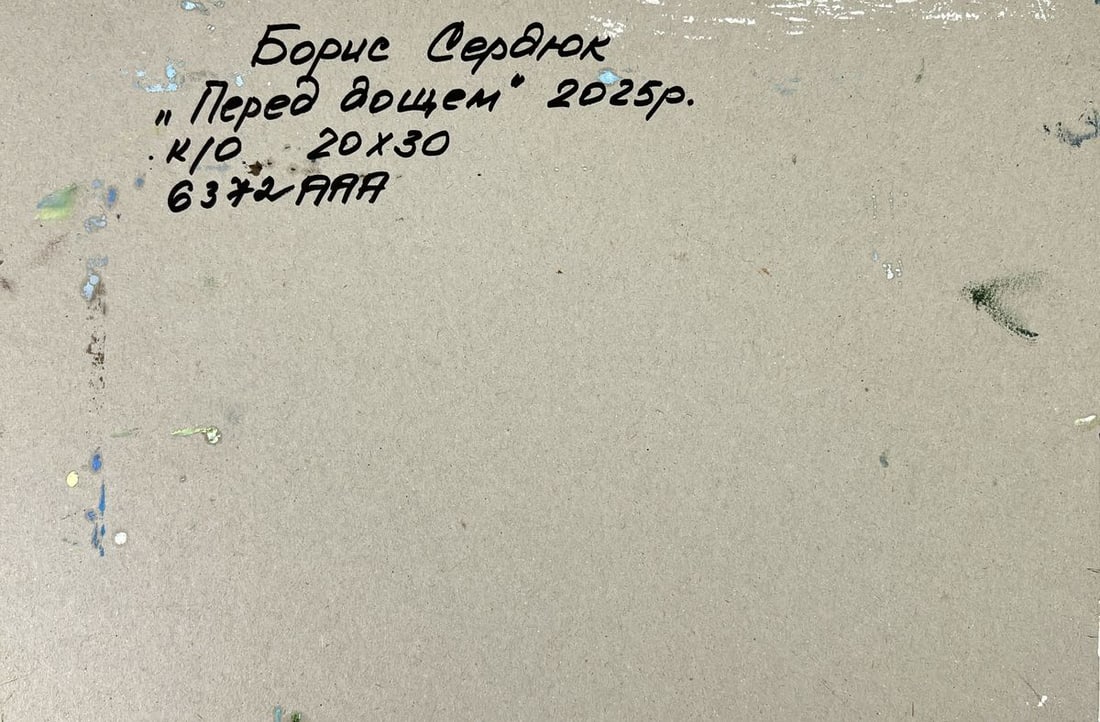 Борис Сердюк
„Перед дощем" 2025р.
к/о 20х30
6372 ААА